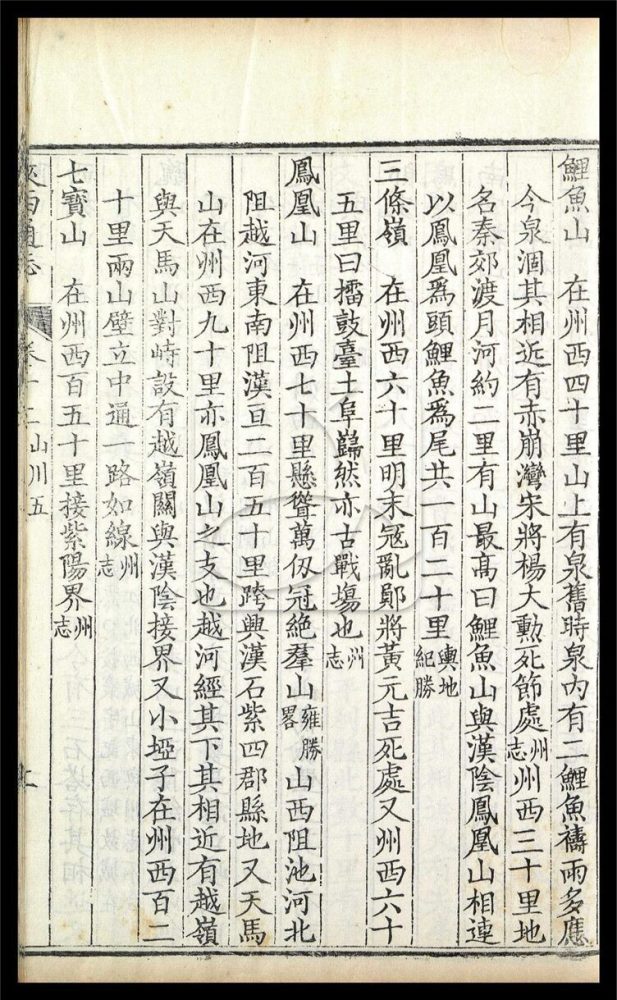 鯉魚山　在州西四十里山上有泉舊時泉內有二鯉魚禱雨多應
今泉涸其相近有赤崩灣宋將楊大勲死節處州志州西三十里地
名秦郊渡月河約二里有山最高曰鯉魚山與漢陰鳳凰山相連
以鳳凰爲頭鯉魚爲尾共一百二十里輿地紀勝
三條嶺　在州西六十里明末冦亂鄖將黃元吉死處又州西六十
五里曰擂鼓臺土阜巋然亦古戰塲也州志
鳳凰山　在州西七十里懸聳萬仭冠絶羣山雍勝畧山西阻池河北
阻越河東南阻漢亘二百五十里跨興漢石紫四郡縣地又天馬
山在州西九十里亦鳳凰山之支也越河經其下其相近有越嶺
與天馬山對峙設有越嶺關與漢陰接界又小埡子在州西百二
十里兩山壁立中通一路如線州志
七寶山　在州西百五十里接紫陽界州志
陝西通志
卷十二山川五